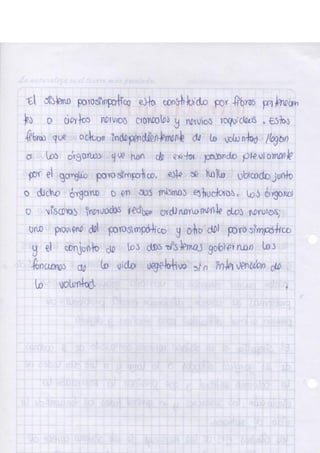 El sistema parasimpatico esta constituido por fibras pertenecien
tes a ciertos nervios craneales y nervios raquideos. Estas
fibras que actuan independientemente de la voluntag llegan
a los órganos que han de exitar pasando previamente
por el ganglio parasimpatico. este se halla ubicado junto
a dicho órgano o en sus mismas estructuras. Los órganos
o visceras inervadas reciben ordinariamente dos nervios;
uno proviene del parasimpático y otro del para simpatico
y el conjunto de los dos sistemas gobiernan las
funciones de la vida vegetativa sin intervención de
la voluntad.